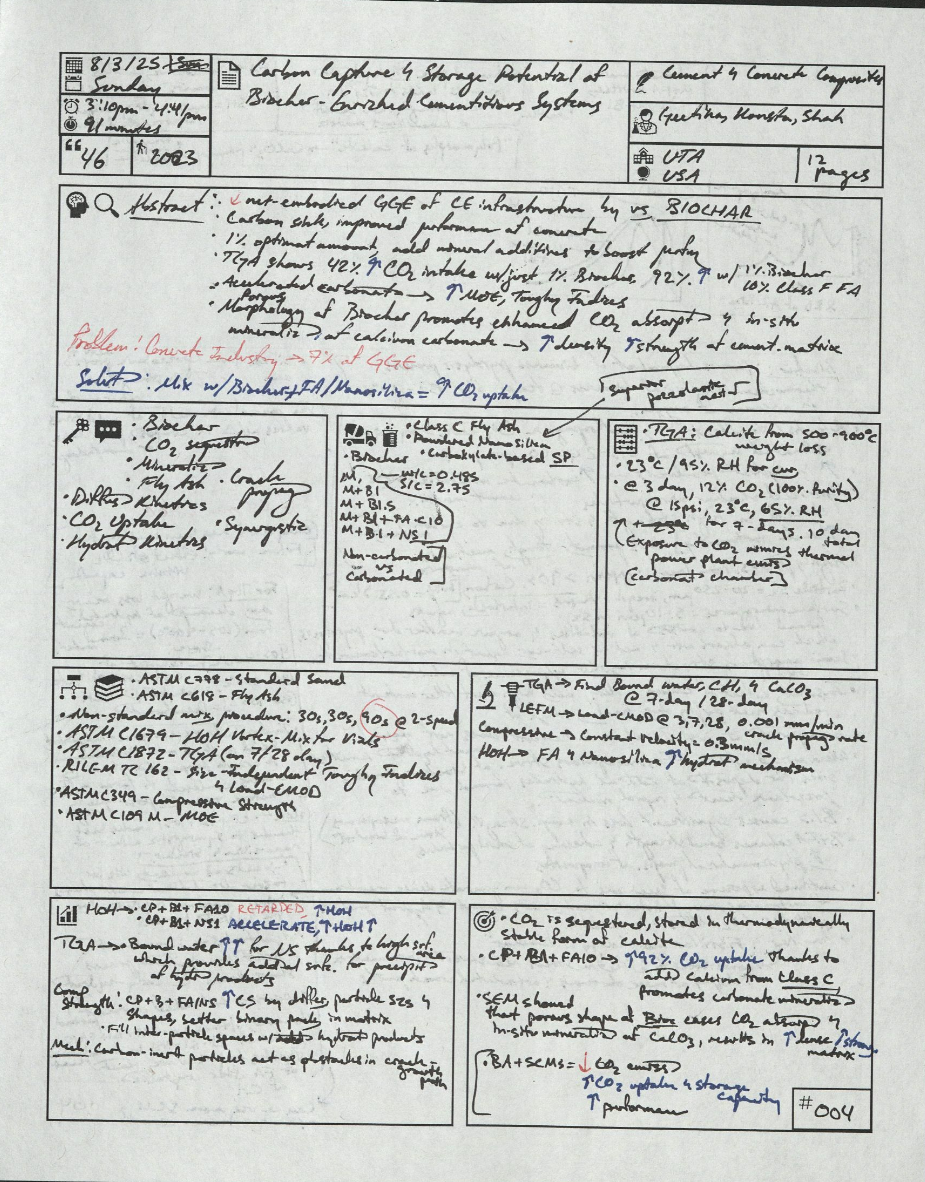 8/3/25 Sun
Sunday
3:10pm - 4:41pm
91 minutes
46
2023
Carbon Capture & Storage Potential of
Biochar-Enriched Cementitious Systems
Cement & Concrete Composites
Geetika, Konsta, Shah
UTA
USA
12 pages
Abstract: • ↓ net-embodied GGE of CE infrastructure by vs BIOCHAR
• Carbon sink, improved performance of concrete
• 1% optimum amount, add mineral additives to boost
• TGA shows 42% ↑ CO2 intake w/just 1% Biochar, 92% ↑ w/ 1% Biochar
10% Class F FA
• Accelerated carbonat → ↑ MOE, Toughg Indices
• Porous
Morphology of Biochar promotes enhanced CO2 absorpt & in-situ
mineraliz of calcium carbonate → ↑ density ↑ strength of cement. matrix
Problem! Concrete Industry → 7% of GGE
Solut: Mix w/Biochar+FA/Nanosilica = ↑ CO2 uptake
↑ superior
pozzolanic
• Biochar
• CO2 sequestr
• Mineraliz
• Fly Ash
• Crack
propag
• Diffus Kinetics
• CO2 Uptake
• Synergistic
• Hydrat Kinetics
• Class C Fly Ash
• Powdered Nanosilica
• Carboxylate-based SP
• Biochar
w/c = 0.485
S/C = 2.75
M,
M+B1
M+B1.5
M+B1+FA-C10
M+B1+NS1
Non-carbonated
vs
Carbonated
• TGA: Calcite from 500-900°C
weight loss
• 23°C / 95% RH for cur
• @ 3 day, 12% CO2 (100% Purity)
@ 15psi, 23°C, 65% RH
for 7-days. 10 day
total
Exposure to CO2 mimics thermal
power plant emiss
(carbonat chamber)
• ASTM C778 - Standard Sand
• ASTM C618 - Fly Ash
• Non-standard mix procedure: 30s, 30s, 90s @ 2-speed
• ASTM C1679 - HOH Vortex-Mix for Vials
• ASTM C1872 - TGA (on 7/28 day)
• RILEM TC 162 - Size-Independent Toughg Indices
& Load-CMOD
• ASTM C349 - Compressive Strength
• ASTM C109 M - MOE
TGA → Find Bound water, CH, & CaCO3
@ 7-day / 28-day
LEFM → Load-CMOD @ 3,7,28, 0.001 mm/min
crack propag rate
Compressive → Constant velocity = 0.3mm/s
HOH → FA & Nanosilica ↑ hydrat mechanism
HOH → • CP+B1+FA10 RETARDED, ↑HOH
• CP+B1+NS1 ACCELERATE, ↑HOH ↑
TGA → • Bound water ↑↑ for NS thanks to high surf. area
which provides addit surf. for precipit
of hydr products
Comp
Strength: CP+B+FA/NS ↑ CS by differ. particle szs &
shapes, better binary pack in matrix
• Fill inter-particle spaces w/ hydrat products
Mech: Carbon-inert particles act as obstacles in crack-
growth
path
• CO2 is sequestered, stored in thermodynamically
stable form of calcite
• CP+B1+FA10 → ↑92% CO2 uptake thanks to
add calcium from Class C
promotes carbonate mineraliz
• SEM showed
that porous shape of Bioc eases CO2 absorp &
in-situ mineraliz of CaCO3, results in ↑ dense / ↑ strong
matrix
• BA+SCMs = ↓ CO2 emiss
↑ CO2 uptake & storage
capacity
↑ performance
#004